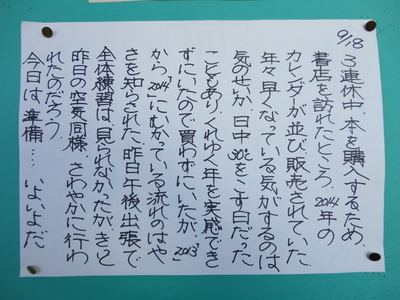 9/18
3連休中、本を購入するため、
書店を訪れたところ、2014年の
カレンダーが並び販売されていた。
年々早くなっている気がするのは
気のせいか、日中30℃をこす日だった
こともあり、くれゆく年を実感でき
ずにいたので買わずにいたが、"2013"
から"2014"にむかっている流れのはや
さを知らされた。昨日午後出張で
全体練習は見られなかったがきっと
昨日の空気同様、さわやかに行わ
れたのだろう。
今日は準備…。いよいよだ